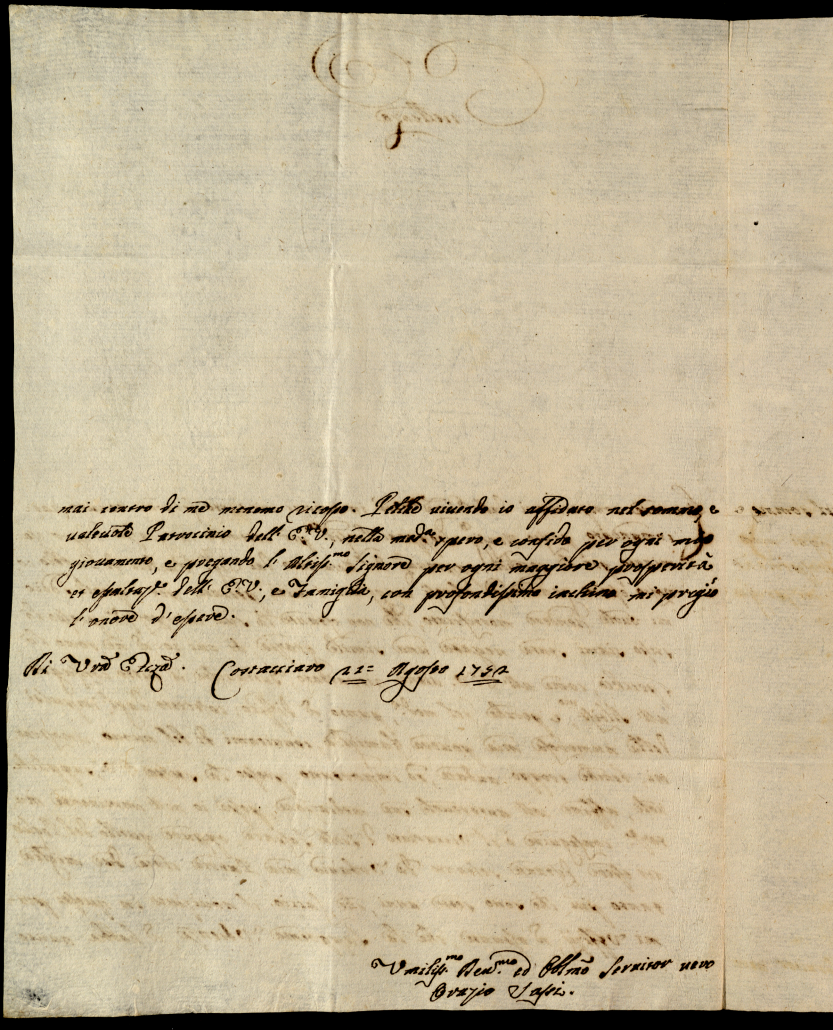 mai contro di me menomo ricorso. Perche vivendo io affidato nel sommo, e
valevole Patrocinio dell' E. V., nella med.ma spero, e confido per ogni mio
giovamento, e pregando l' Altiss.mo Signore per ogni maggiore prosperità
et esaltaz.e dell' E. V., e Famiglia, con profondissimo inchino mi pregio
l' onore d' essere.
Di Vra Eccza. Costacciaro 22= Agosto 1752
Umiliss.mo Dev.mo ed Obblmo Servitor vero
Orazio